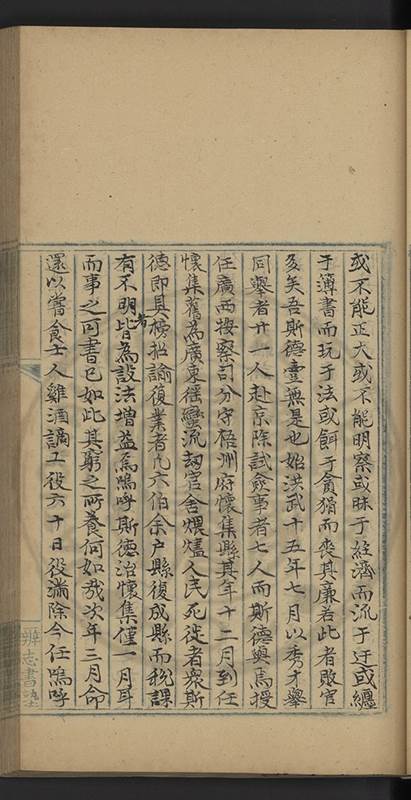 或不能正大或不能明察或昧于經濟而流于迂或纏
于簿書而玩于法或餌于貪猾而喪其廉若此者敗官
多矣吾斯德壹無是也始洪武十五年七月以秀才舉
同舉者廿一人赴京除試僉事者七人而斯德與焉授
任廣西按察司分守梧州府懷集縣其年十二月到任
懷集舊為廣東徭蠻流刼官舍煨燼人民死徙者衆斯
德即具榜招諭復業者凡六伯余户縣復成縣而税課
有不明者皆為設法增益焉嗚呼斯德治懷集僅一月耳
而事之可書已如此其窮之所養何如哉次年三月命
還以嘗食士人雞酒謫工役六十日役滿除今任嗚呼
辨志書塾